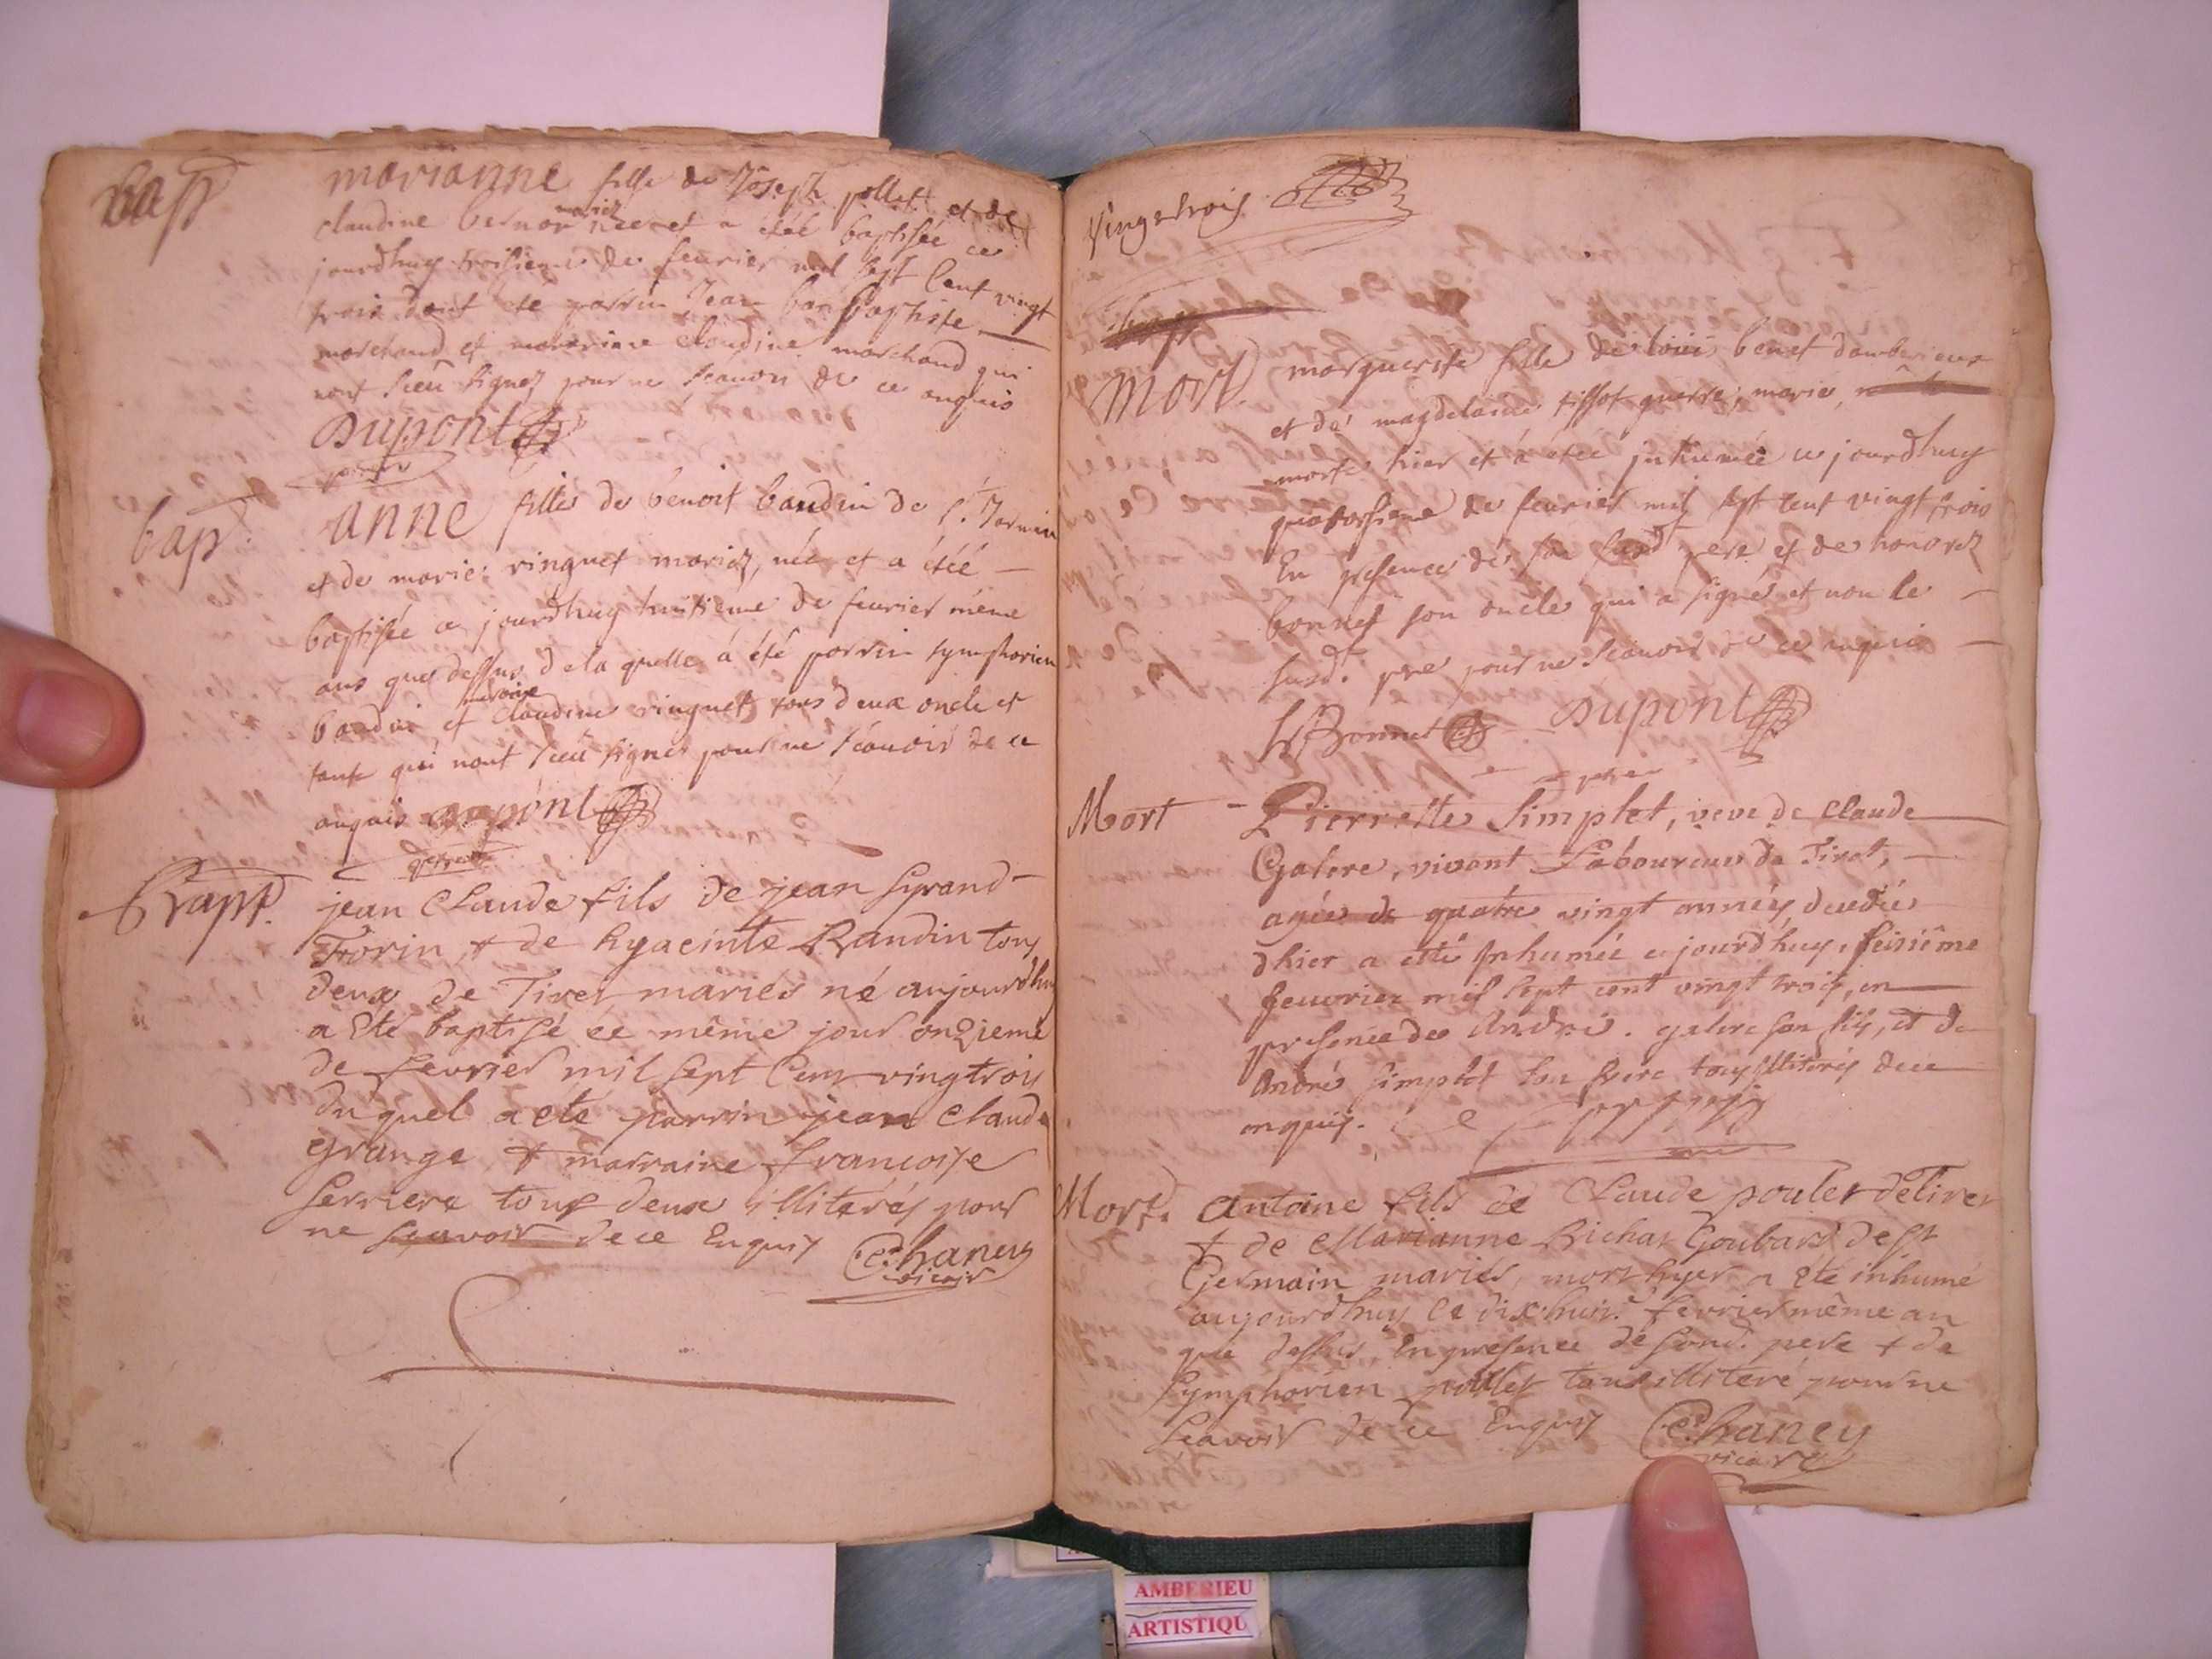 bapt
marianne fille de Joseph pollet et de
claudine bernor mariez née et a étéé baptisée ce
jourdhuy troisieme de feurier mil sept Cent vingt
trois dont été parrin Jean baptiste
marchand et marraine claudine marchand qui
nont sceu signez pour ne scauoir de ce enquis
Dupont
bapt.
anne fille de benoit baudin de st. Jermain
et de marie ringuet mariez, née et a étéé
baptisée ce jourdhuy huitieme de feurier même
ans que dessus de la quelle a été parrin symphorien
baudin et maraine claudine ringuet tous deux oncle et
tante qui nont sceu signer pour ne scauoir de ce
enquis Dupont
Bapt.
jean Claude fils de jean Syrand
Tiorin, & de hyacinte Baudin tous
deux de Tiret mariés né aujourdhuy
a Eté baptisé ce même jour onzieme
de feurier mil sept Cent vingtrois
duquel a eté parrin jean Claude
grange & marraine francoise
serriere tous deux illiterés pour
ne scavoir de ce Enquis C. haney
vicair
vingtrois
mort
marguerite fille de loüis bonet dambérieux
et de magdelaine tissot guerre, marie,
morte hier et a étéé inhumée ce jourdhuy
quatorsieme de feurier mil sept cent vingt trois
En presence de son susd pere et de honorez
bonnet son oncle qui a signé et non le
susd. pere pour ne scauoir de ce enquis
h Bonnet Dupont
Mort
Pierrette Simplet, veve de Claude
Galere, vivant Laboureur de Tiret,
agée de quatre vingt années, decedée
dhier a etté Inhumée ce jourd'huy, seisiême
feuvrier mil sept cent vingt trois, en
presence de André. galere son fils, et de
André simplet son frere tous illiterés de ce
enquis.
Mort.
antoine fils de Claude poulet de Tiret
& de Marianne Richar Goubard de st
Germain mariés, mort hyer a Eté inhumé
aujourdhuy Ce dix huit. fevrier même an
que dessus En presence de sond. pere & de
Symphorien pollet tous illiteré pour ne
scavoir de ce Enquis C. haney
vicair
AMBERIEU
ARTISTIQU